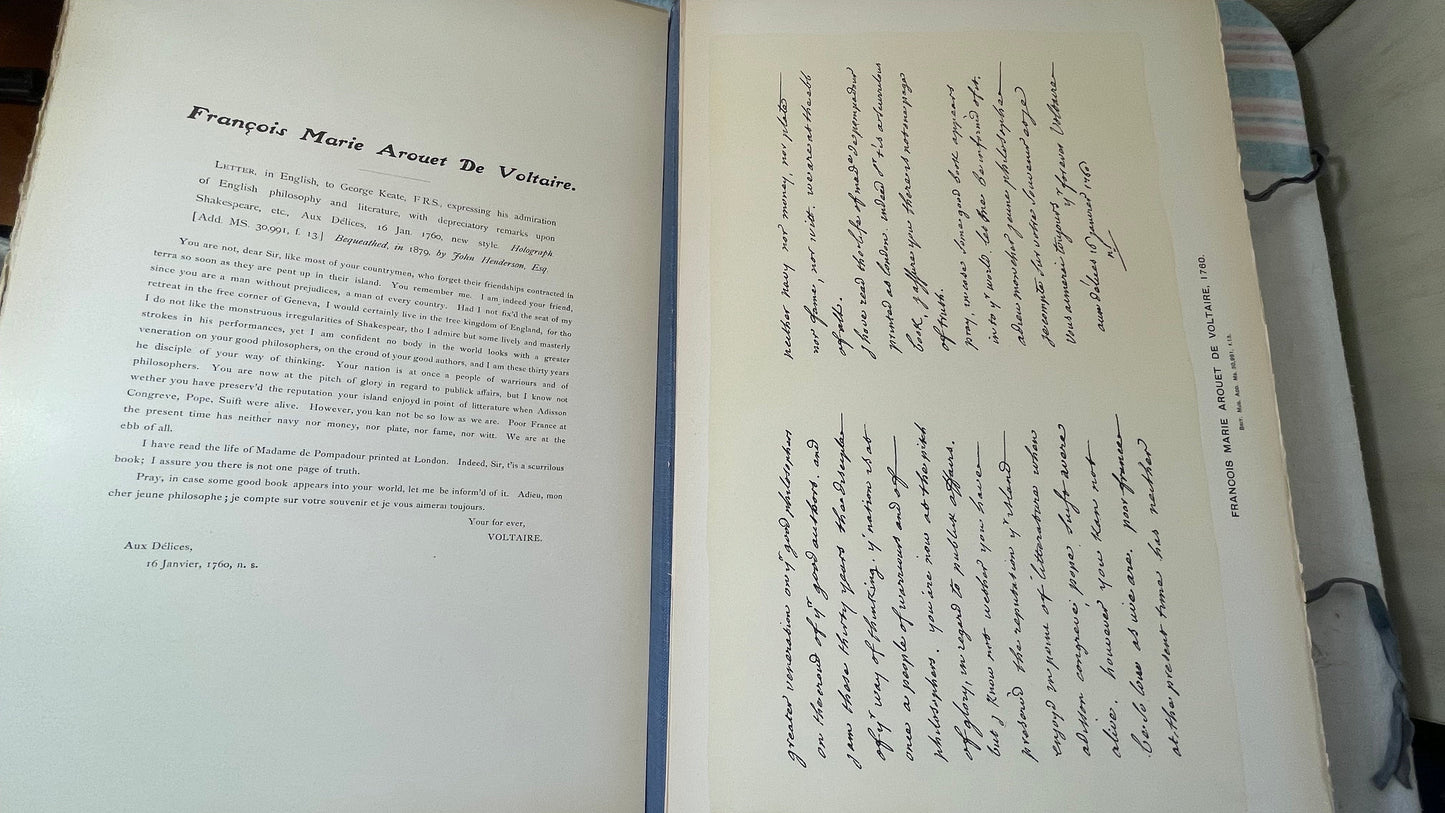 François Marie Arouet De Voltaire.
LETTER, in English, to George Keate, F.R.S., expressing his admiration
of English philosophy and literature, with depreciatory remarks upon
Shakespeare, etc., Aux Délices, 16 Jan. 1760, new style. Holograph.
[Add. MS. 30,991, f. 13.] Bequeathed, in 1879, by John Henderson, Esq.
You are not, dear Sir, like most of your countrymen, who forget their friendships contracted in
terra so soon as they are pent up in their island. You remember me. I am indeed your friend,
since you are a man without prejudices, a man of every country. Had I not fix'd the seat of my
retreat in the free corner of Geneva, I would certainly live in the free kingdom of England, for tho
I do not like the monstruous irregularities of Shakespear, tho I admire but some lively and masterly
strokes in his performances, yet I am confident no body in the world looks with a greater
veneration on your good philosophers, on the croud of your good authors, and I am these thirty years
he disciple of your way of thinking. Your nation is at once a people of warriours and of
philosophers. You are now at the pitch of glory in regard to publick affairs, but I know not
wether you have preserv'd the reputation your island enjoyd in point of litterature when Adisson
Congreve, Pope, Suift were alive. However, you kan not be so low as we are. Poor France at
the present time has neither navy nor money, nor plate, nor fame, nor witt. We are at the
ebb of all.
I have read the life of Madame de Pompadour printed at London. Indeed, Sir, t'is a scurrilous
book; I assure you there is not one page of truth.
Pray, in case some good book appears into your world, let me be inform'd of it. Adieu, mon
cher jeune philosophe; je compte sur votre souvenir et je vous aimerai toujours.
Your for ever,
VOLTAIRE.
Aux Délices,
16 Janvier, 1760, n. s.
greater veneration on yr good philosophers
on the croud of yr good authors, and
j am these thirty years the disciple
of yr way of thinking. yr nation is at
once a people of warriours and of
philosophers. you are now at the pitch
of glory, in regard to publick affairs.
but j know not wether you have
preserv'd the reputation yr island
enjoyd in point of litterature when
adisson congreve pope suift were
alive. however you kan not
be so low as we are. poor france
at the present time has neither
neither navy nor money, nor plate
nor fame, nor witt. we are at the ebb
of all.
j have read the life of made de pompadour
printed at london. indeed sr t'is a scurrilous
book, j assure you there is not one page
of truth.
pray, in case some good book appears
into yr world, let me be inform'd of it.
adieu mon cher jeune philosophe
je compte sur votre souvenir et je
vous aimerai toujours yr for ever Voltaire
aux délices 16 janvier 1760
n s
FRANCOIS MARIE AROUET DE VOLTAIRE, 1760.
BRIT. MUS. ADD. MS. 30,991. f.13.